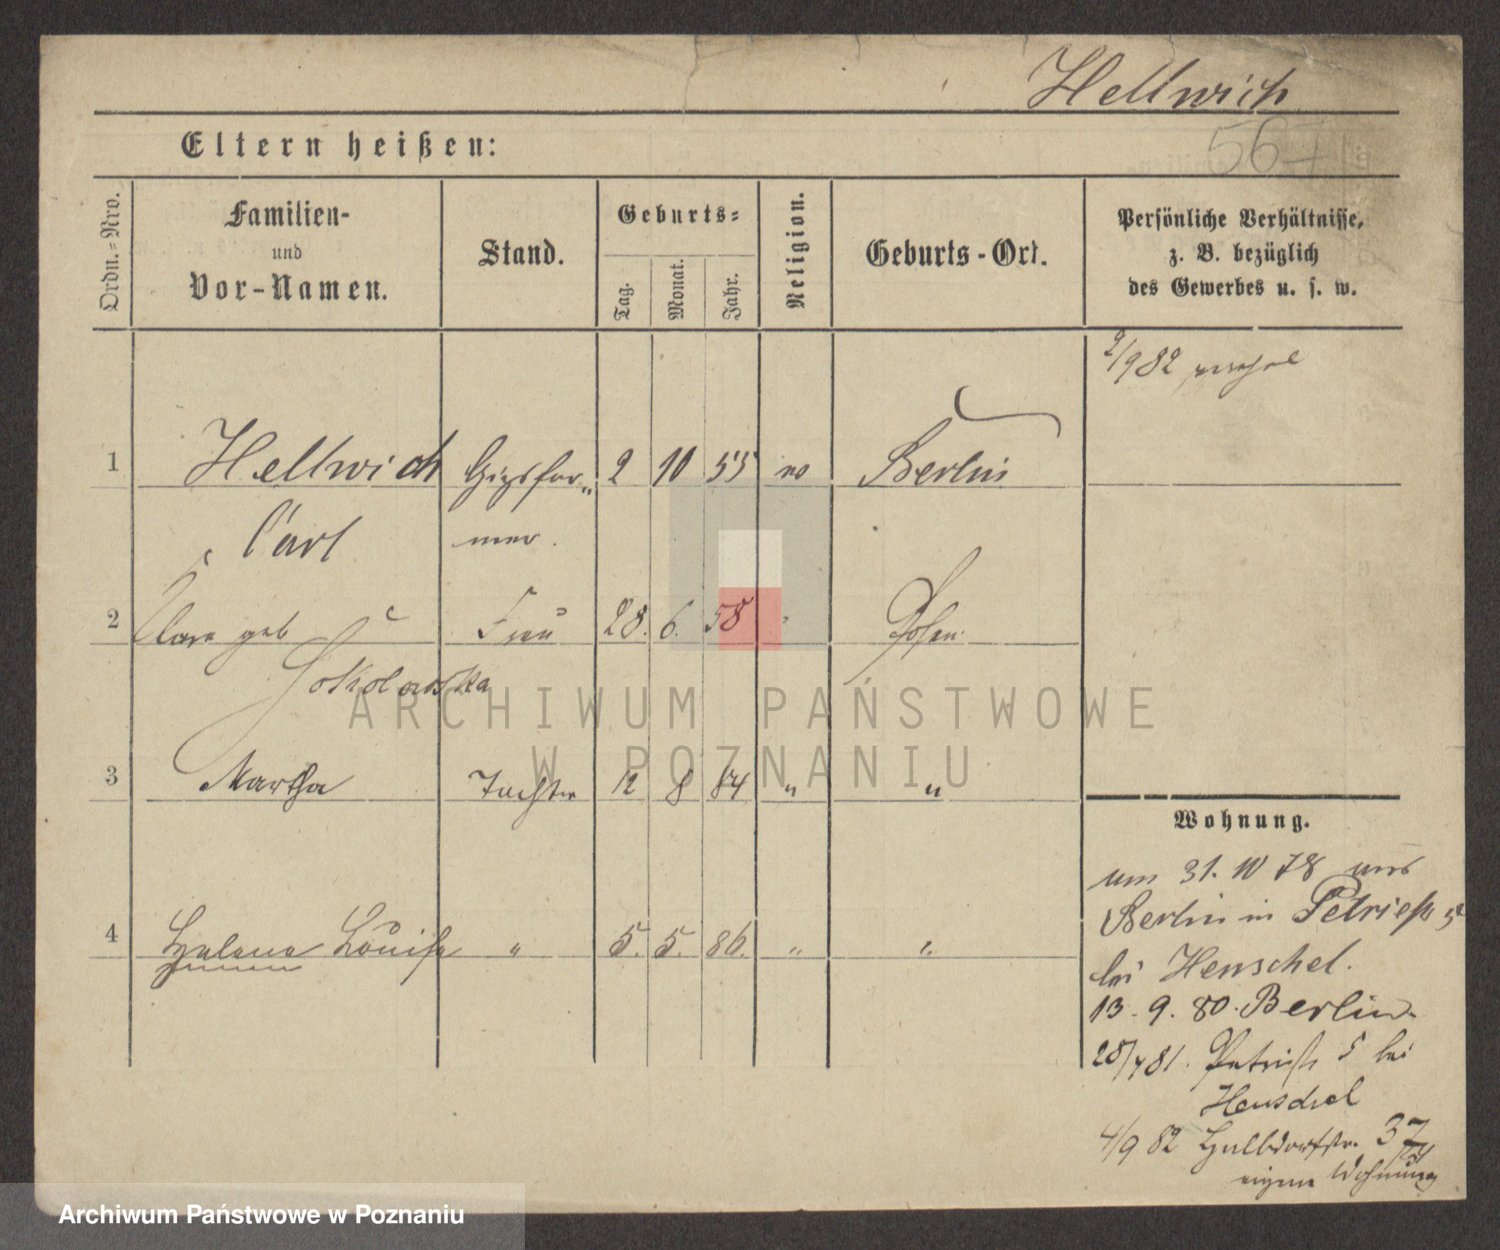 Hellwich
567
Eltern heißen:
Ordn.=Nro.
Familien-
und
Vor-Namen.
Stand.
Geburts=
Tag.
Monat.
Jahr.
Religion.
Geburts-Ort.
Persönliche Verhältnisse,
z. B. bezüglich
des Gewerbes u. s. w.
2/9 82
1 Hellwich Gipsfor„ 2 10 55 Berlin
Carl mer.
2 Clara geb Frau 28. 6. 58 Posen
Sokolowska
3 Martha Tochter 12 8 84 „ „
4 Helene Louise „ 5. 5. 86. „ „
Wohnung.
um 31. 10 78 aus
Berlin in Petristr 5
bei Henschel.
13. 9. 80. Berlin.
25/4 81. Petristr 5 bei
Henschel
4/9 82 Halbdorfstr. 37
eigene Wohnung
ARCHIWUM PAŃSTWOWE
W POZNANIU
Archiwum Państwowe w Poznaniu